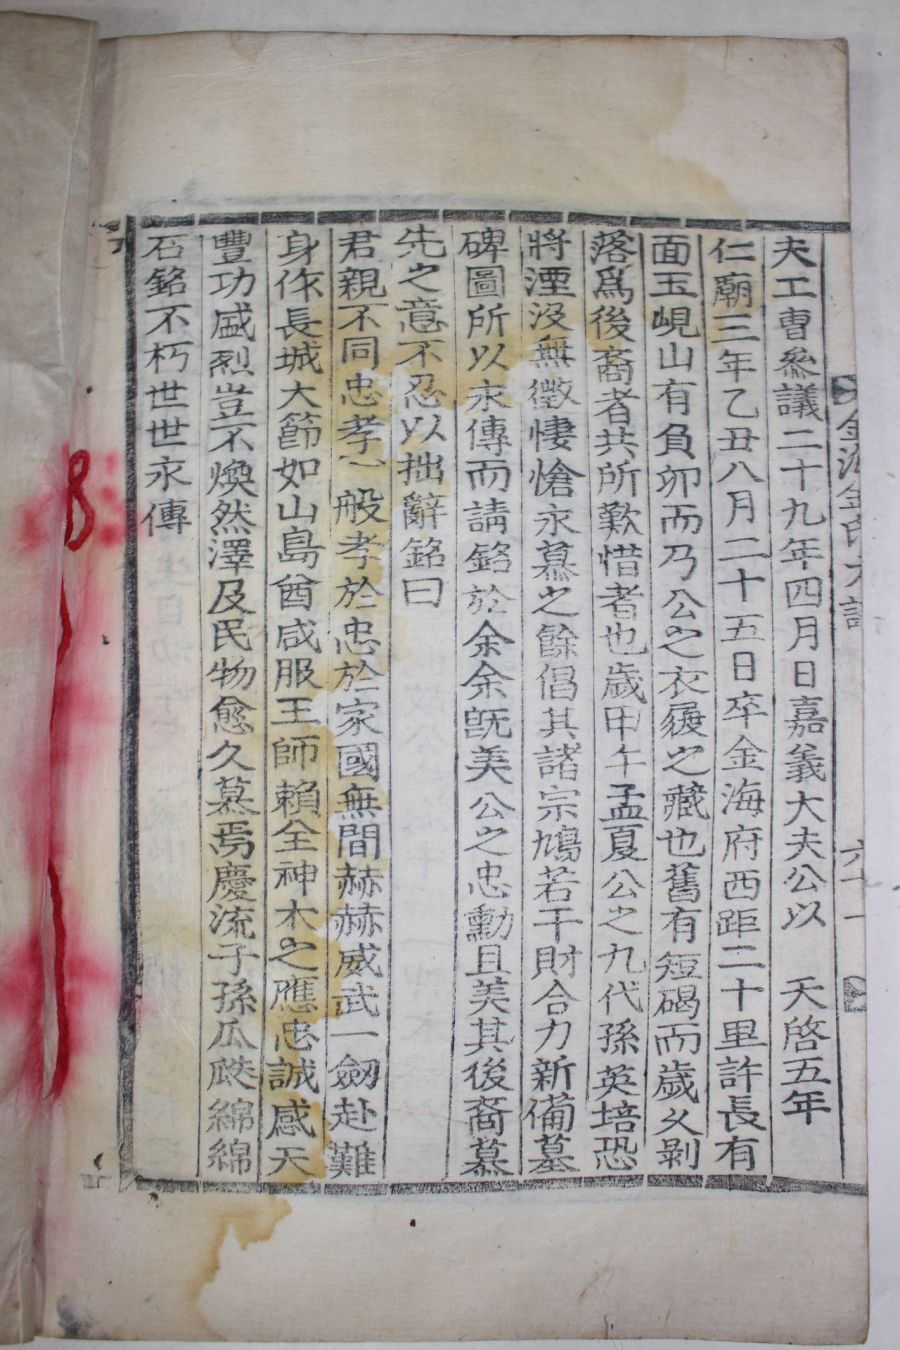 夫工曹叅議二十九年四月日嘉義大夫公以 天啓五年
仁廟三年乙丑八月二十五日卒金海府西距二十里許長有
面玉峴山有負卯而乃公之衣履之藏也舊有短碣而歲久剝
落爲後裔者共所歎惜者也歲甲午孟夏公之九代孫英培恐
將湮沒無徵悽愴永慕之餘倡其諸宗鳩若干財合力新備墓
碑圖所以永傳而請銘於余余旣美公之忠勳且美其後裔慕
先之意不忍以拙辭銘曰
君親不同忠孝心般孝於忠於家國無間赫赫威武一劒赴難
身作長城大節如山島酋咸服王師賴全神木之應忠誠感天
豐功盛烈豈不煥然澤及民物愈久慕焉慶流子孫瓜瓞綿綿
石銘不朽世世永傳
金海金氏